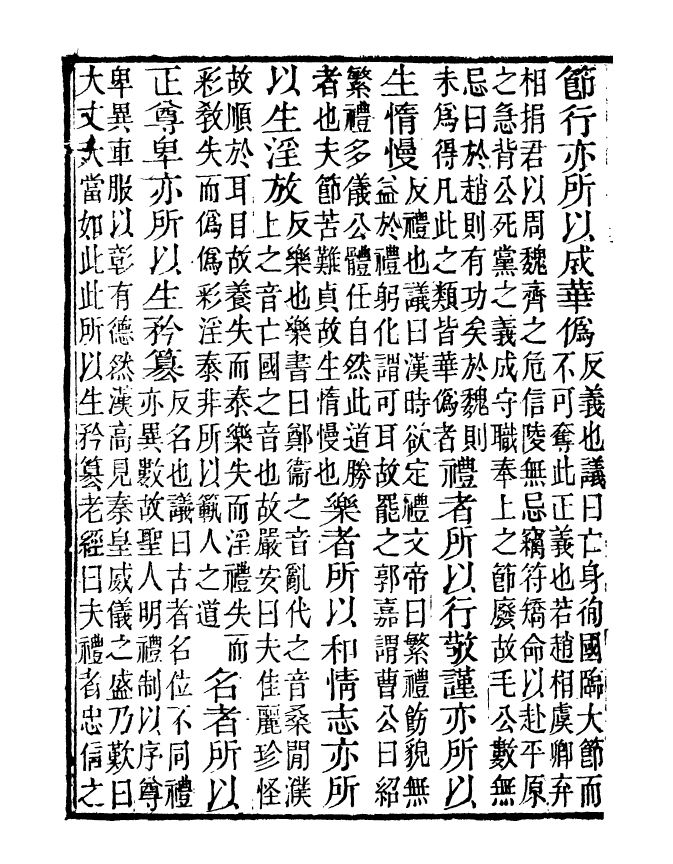 節行亦所以成華僞
反義也議曰亡身徇國臨大節而
不可奪此正義也若趙相虞卿弃
相捐君以周魏齊之危信陵無忌竊符矯命以赴平原
之急背公死黨之義成守職奉上之節廢故毛公數無
忌曰於趙則有功矣於魏則
未爲得凡此之類皆華僞者
禮者所以行敬謹亦所以
生惰慢
反禮也議曰漢時欲定禮文帝曰繁禮飭貌無
益於禮躬化謂可耳故罷之郭嘉謂曹公曰紹
繁禮多儀公體任自然此道勝
者也夫節苦難貞故生惰慢也
樂者所以和情志亦所
以生淫放
反樂也樂書曰鄭衞之音亂代之音桑閒濮
上之音亡國之音也故嚴安曰夫佳麗珍怪
故順於耳目故養失而泰樂失而淫禮失而
彩教失而僞僞彩淫泰非所以範人之道
名者所以
正尊卑亦所以生矜篡
反名也議曰古者名位不同禮
亦異數故聖人明禮制以序尊
卑異車服以彰有德然漢高見秦皇威儀之盛乃歎曰
大丈夫當如此此所以生矜篡老經曰夫禮者忠信之